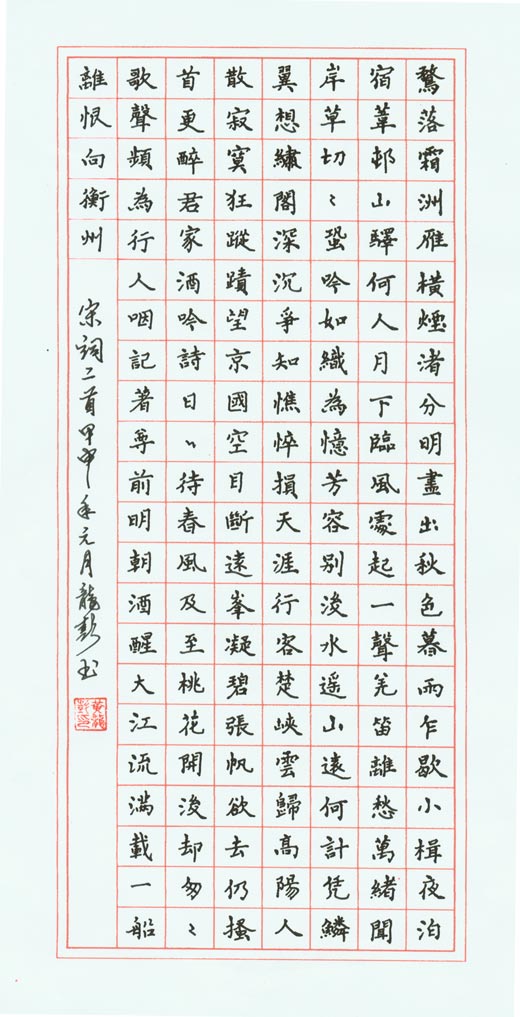 鶩落霜洲雁橫煙渚分明畫出秋色暮雨乍歇小楫夜泊
宿葦邨山驛何人月下臨風處起一聲羌笛離愁萬緒聞
岸草切〻蛩吟如織為憶芳容别後水遥山遠何計凭鱗
翼想繡閣深沉爭知憔悴損天涯行客楚峽雲歸高陽人
散寂寞狂蹤蹟望京國空目斷遠峯凝碧張帆欲去仍搔
首更醉君家酒吟詩日〻待春風及至桃花開後却匆〻
歌聲頻為行人咽記著尊前明朝酒醒大江流滿載一船
離恨向衡州
宋詞二首甲申年元月龍彭书